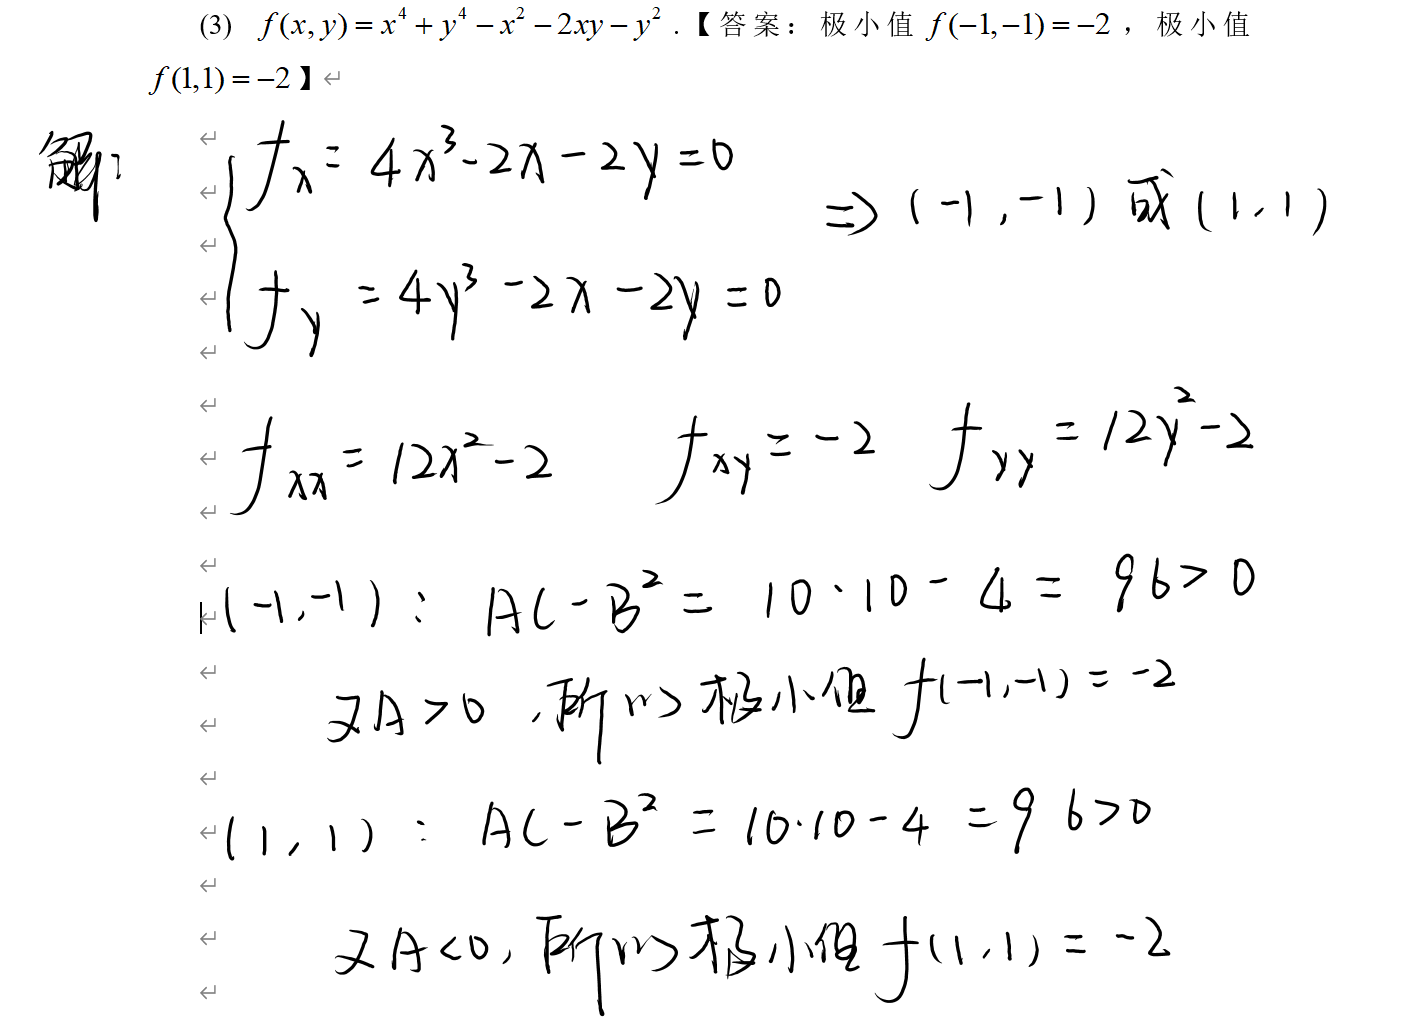 (3) f(x,y)=x⁴+y⁴−x²−2xy−y².【答案：极小值 f(−1,−1)=−2，极小值
f(1,1)=−2】
解：
fx = 4x³-2x-2y=0
⇒ (-1,-1) 或 (1,1)
fy = 4y³-2x-2y=0
fxx = 12x²-2 fxy = -2 fyy = 12y²-2
(-1,-1)： AC-B² = 10·10-4 = 96>0
又A>0，所以极小值 f(-1,-1)=-2
(1,1)： AC-B² = 10·10-4 = 96>0
又A<0，所以极小值 f(1,1)=-2